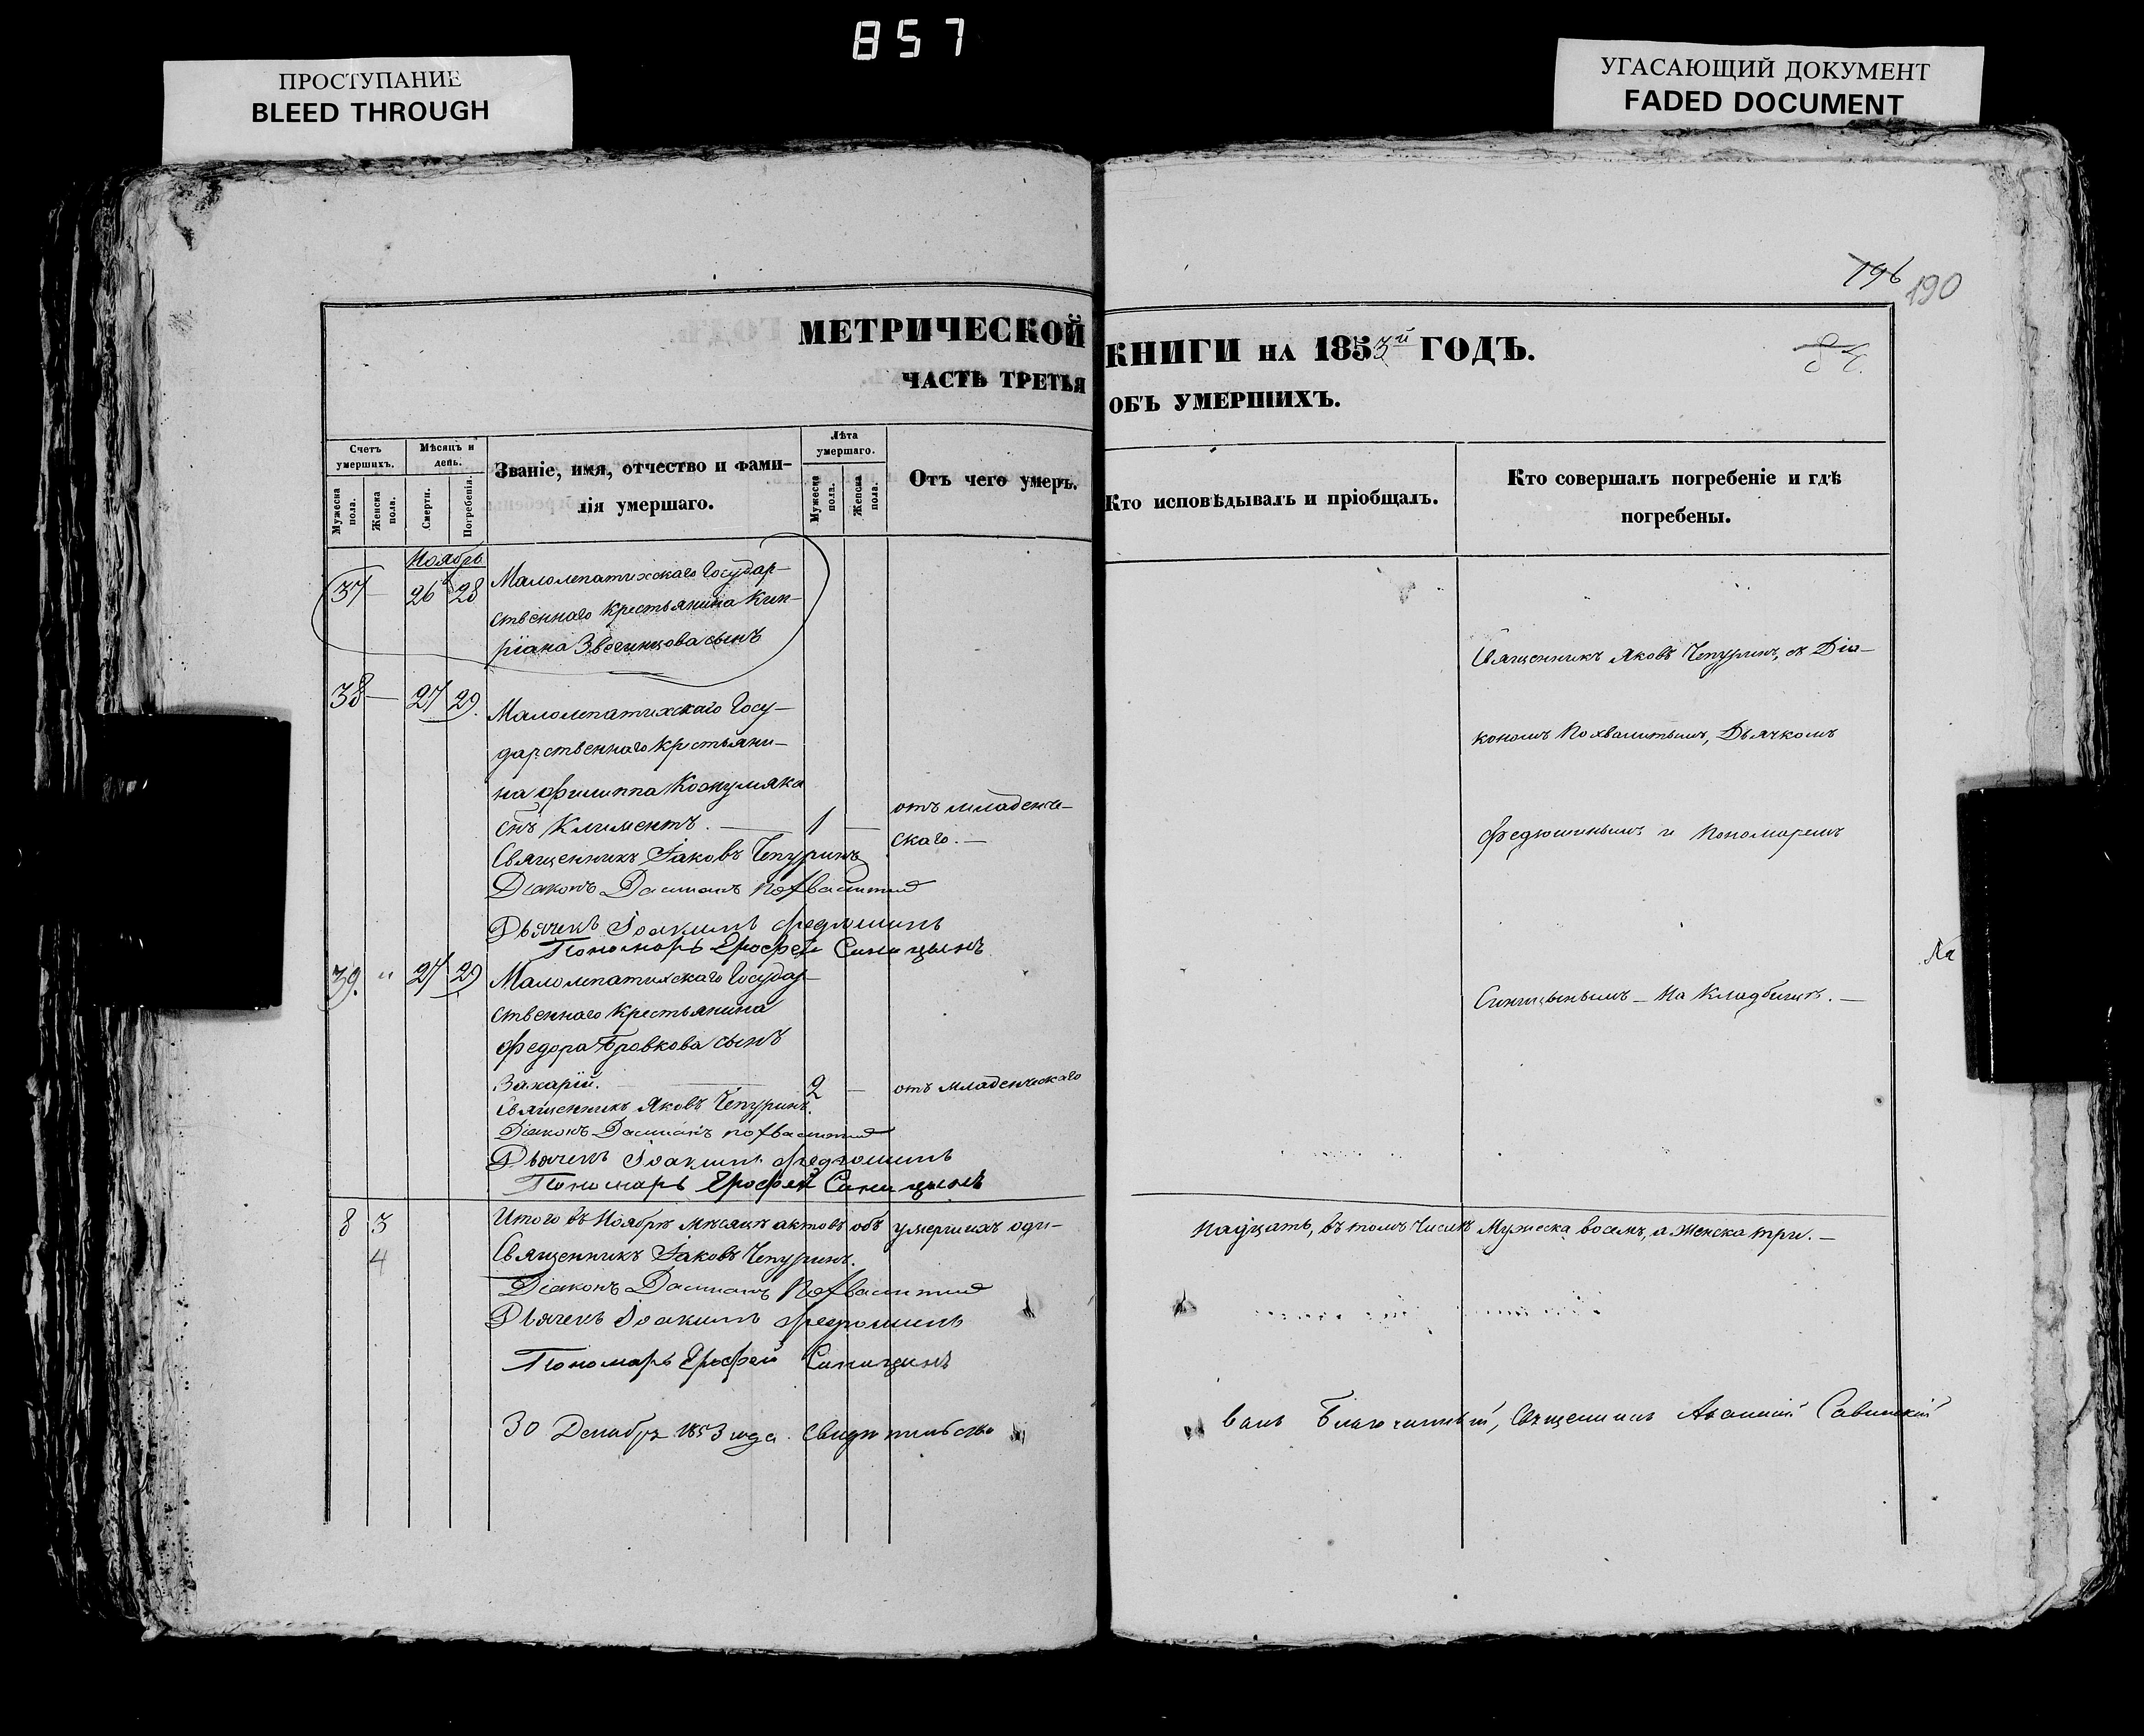 857
ПРОСТУПАНИЕ
BLEED THROUGH
УГАСАЮЩИЙ ДОКУМЕНТ
FADED DOCUMENT
196 190
МЕТРИЧЕСКОЙ КНИГИ НА 1853й ГОДЪ.
ЧАСТЬ ТРЕТЬЯ ОБЪ УМЕРШИХЪ.
Счетъ умершихъ.
Мужеска пола.
Женска пола.
Мѣсяцъ и день.
Смерти.
Погребенія.
Званіе, имя, отчество и фами-
лія умершаго.
Лѣта умершаго.
Мужеска пола.
Женска пола.
Отъ чего умеръ.
Кто исповѣдывалъ и пріобщалъ.
Кто совершалъ погребеніе и гдѣ
погребены.
Ноябрь
37 — 26 28 Малолепатихскаго Государ-
ственнаго крестьянина Кип-
ріана Звегинцова сынъ
38 — 27 29. Малолепатихскаго Госу-
дарственнаго крестьяни-
на Филиппа
снъ Климентъ. — 1 — отъ младенче-
скаго. —
Священникъ Іаковъ Чепуринъ
Діаконъ Даміанъ Похвалитий
Дьячекъ Іоакимъ Федюшинъ
Пономарь Ерофей Синицынъ
39. " 27 29 Малолепатихскаго Государ-
ственнаго крестьянина
Федора Бровкова сынъ
Захарій. — 2 — отъ младенческаго
Священникъ Яковъ Чепуринъ.
Діаконъ Даміанъ Похвалитий
Дьячекъ Іоакимъ Федюшинъ
Пономарь Ерофей Синицынъ
Священникъ Яковъ Чепуринъ, съ Діа-
кономъ Похвалитымъ, Дьячкомъ
Федюшинымъ и Пономаремъ
Синицынымъ — На Кладбищѣ. —
8 3 Итого въ Ноябрѣ мѣсяцѣ актовъ объ умершихъ оди-
надцать, въ томъ числѣ Мужеска восемь, а Женска три. —
4
Священникъ Іаковъ Чепуринъ.
Діаконъ Даміанъ Похвалитий
Дьячекъ Іоакимъ Федюшинъ
Пономарь Ерофей Синицынъ
30 Декабря 1853 года. Свидѣтельство
валъ Благочинный, Священникъ Савинскій